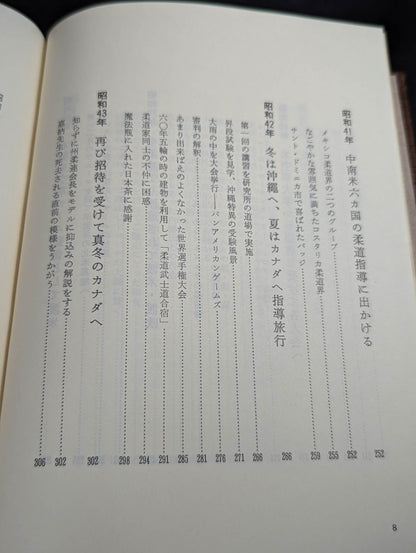 昭和41年　中南米六カ国の柔道指導に出かける……252
メキシコ柔道界の二つのグループ……252
なごやかな雰囲気に満ちたコスタリカ柔道界……255
サント・ドミニカ市で喜ばれたバッジ……259
昭和42年　冬は沖縄へ、夏はカナダへ指導旅行……266
第一回の講習を研究所の道場で実施……266
昇段試験を見学、沖縄特異の受験風景……271
大雨の中を大会挙行――パンアメリカンゲームズ……276
審判の解釈……281
あまり出来ばえのよくなかった世界選手権大会……285
六〇年五輪の時の建物を利用して「柔道武士道合宿」……291
柔道家同士の不仲に困惑……294
魔法瓶に入れた日本茶に感謝……298
昭和43年　再び招待を受けて真冬のカナダへ……302
知らずに州柔連会長をモデルに抑込みの解説をする……302
嘉納先生の死去される直前の模様をうかがう……306
8